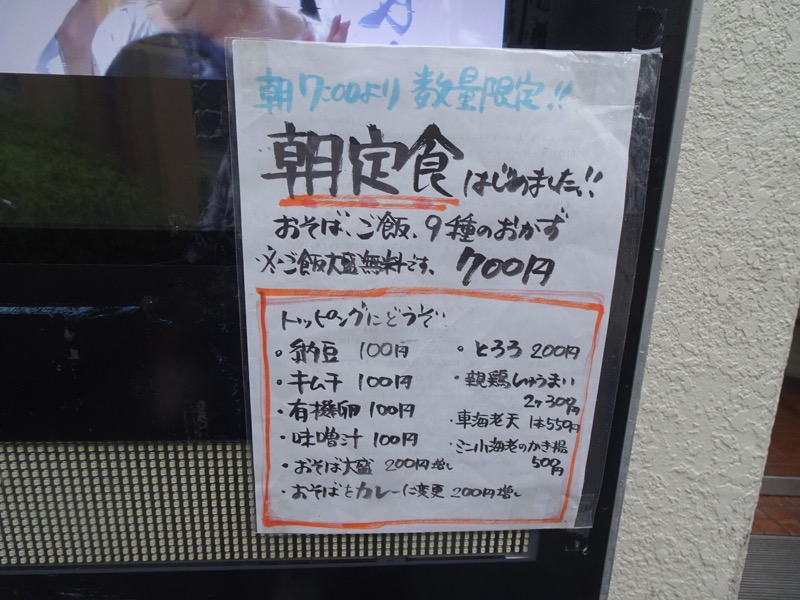 朝7:00より 数量限定!!
朝定食 はじめました!!
おそば、ご飯、9種のおかず
※ご飯大盛無料です、 700円
トッピングにどうぞ
・納豆 100円
・キムチ 100円
・有機卵 100円
・味噌汁 100円
・おそば大盛 200円増し
・おそばをカレーに変更 200円増し
・とろろ 200円
・親鶏しゅうまい
2ヶ300円
・車海老天 1本550円
・ミニ小海老のかき揚
500円